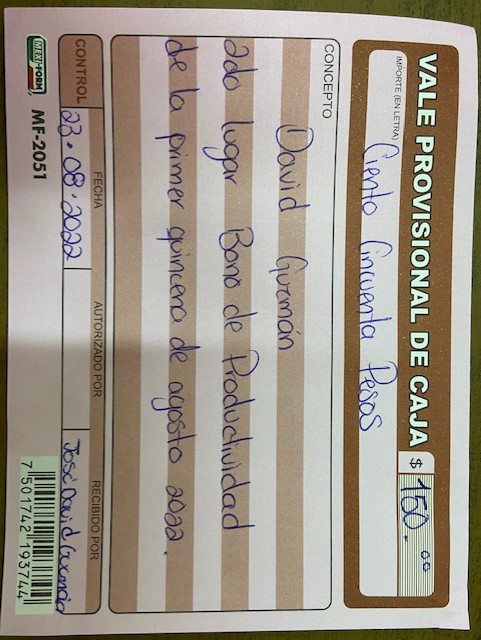 VALE PROVISIONAL DE CAJA $ 150.00
IMPORTE (EN LETRA)
Ciento Cincuenta Pesos
CONCEPTO
David Guzmán
2do lugar Bono de Productividad
de la primer quincena de agosto 2022.
CONTROL
FECHA
AUTORIZADO POR
RECIBIDO POR
23.08.2022
José David Guzmán
MEXI-FORM
MF-2051
7 501742 193744